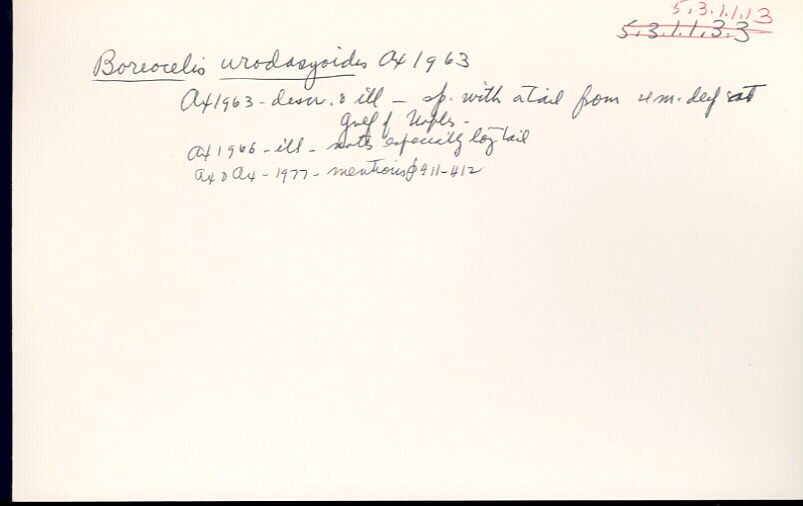 5.3.1.1.13
5.3.1.1.3.3
Boreocelis urodasyoides Ax 1963
Ax 1963 - descr. & ill - sp. with a tail from 4 m. deep at
Gulf of Naples -
Ax 1966 - ill - notes especially long tail
Ax & Ax - 1977 - mentions p 411-412